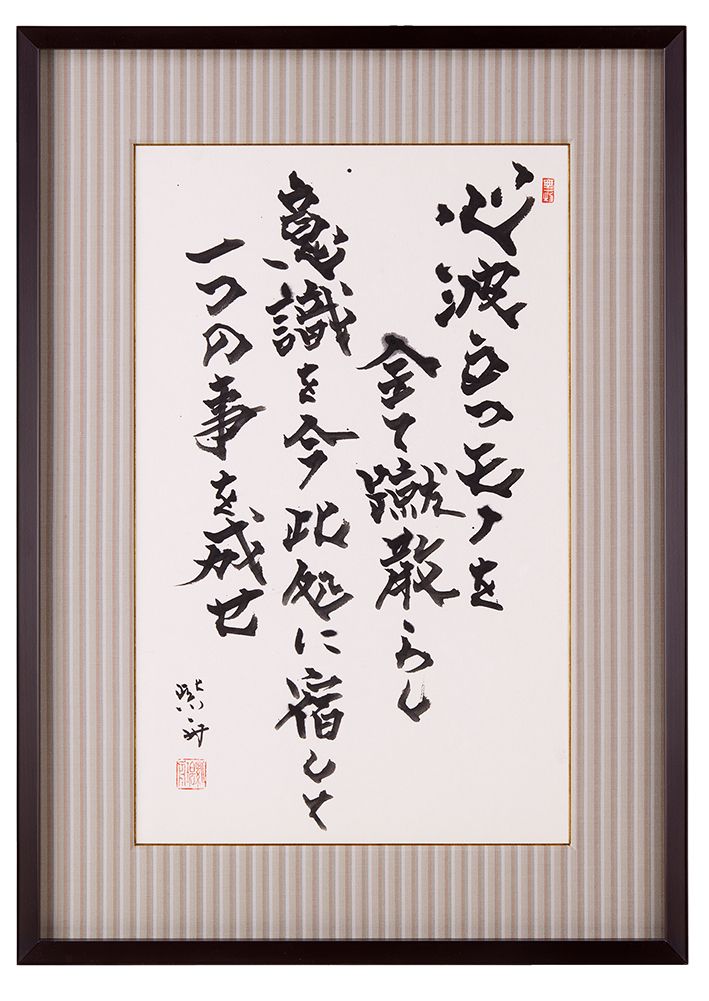 心波立つモノを
全て蹴散らし
意識を今此処に宿して
一つの事を成せ
紫舟